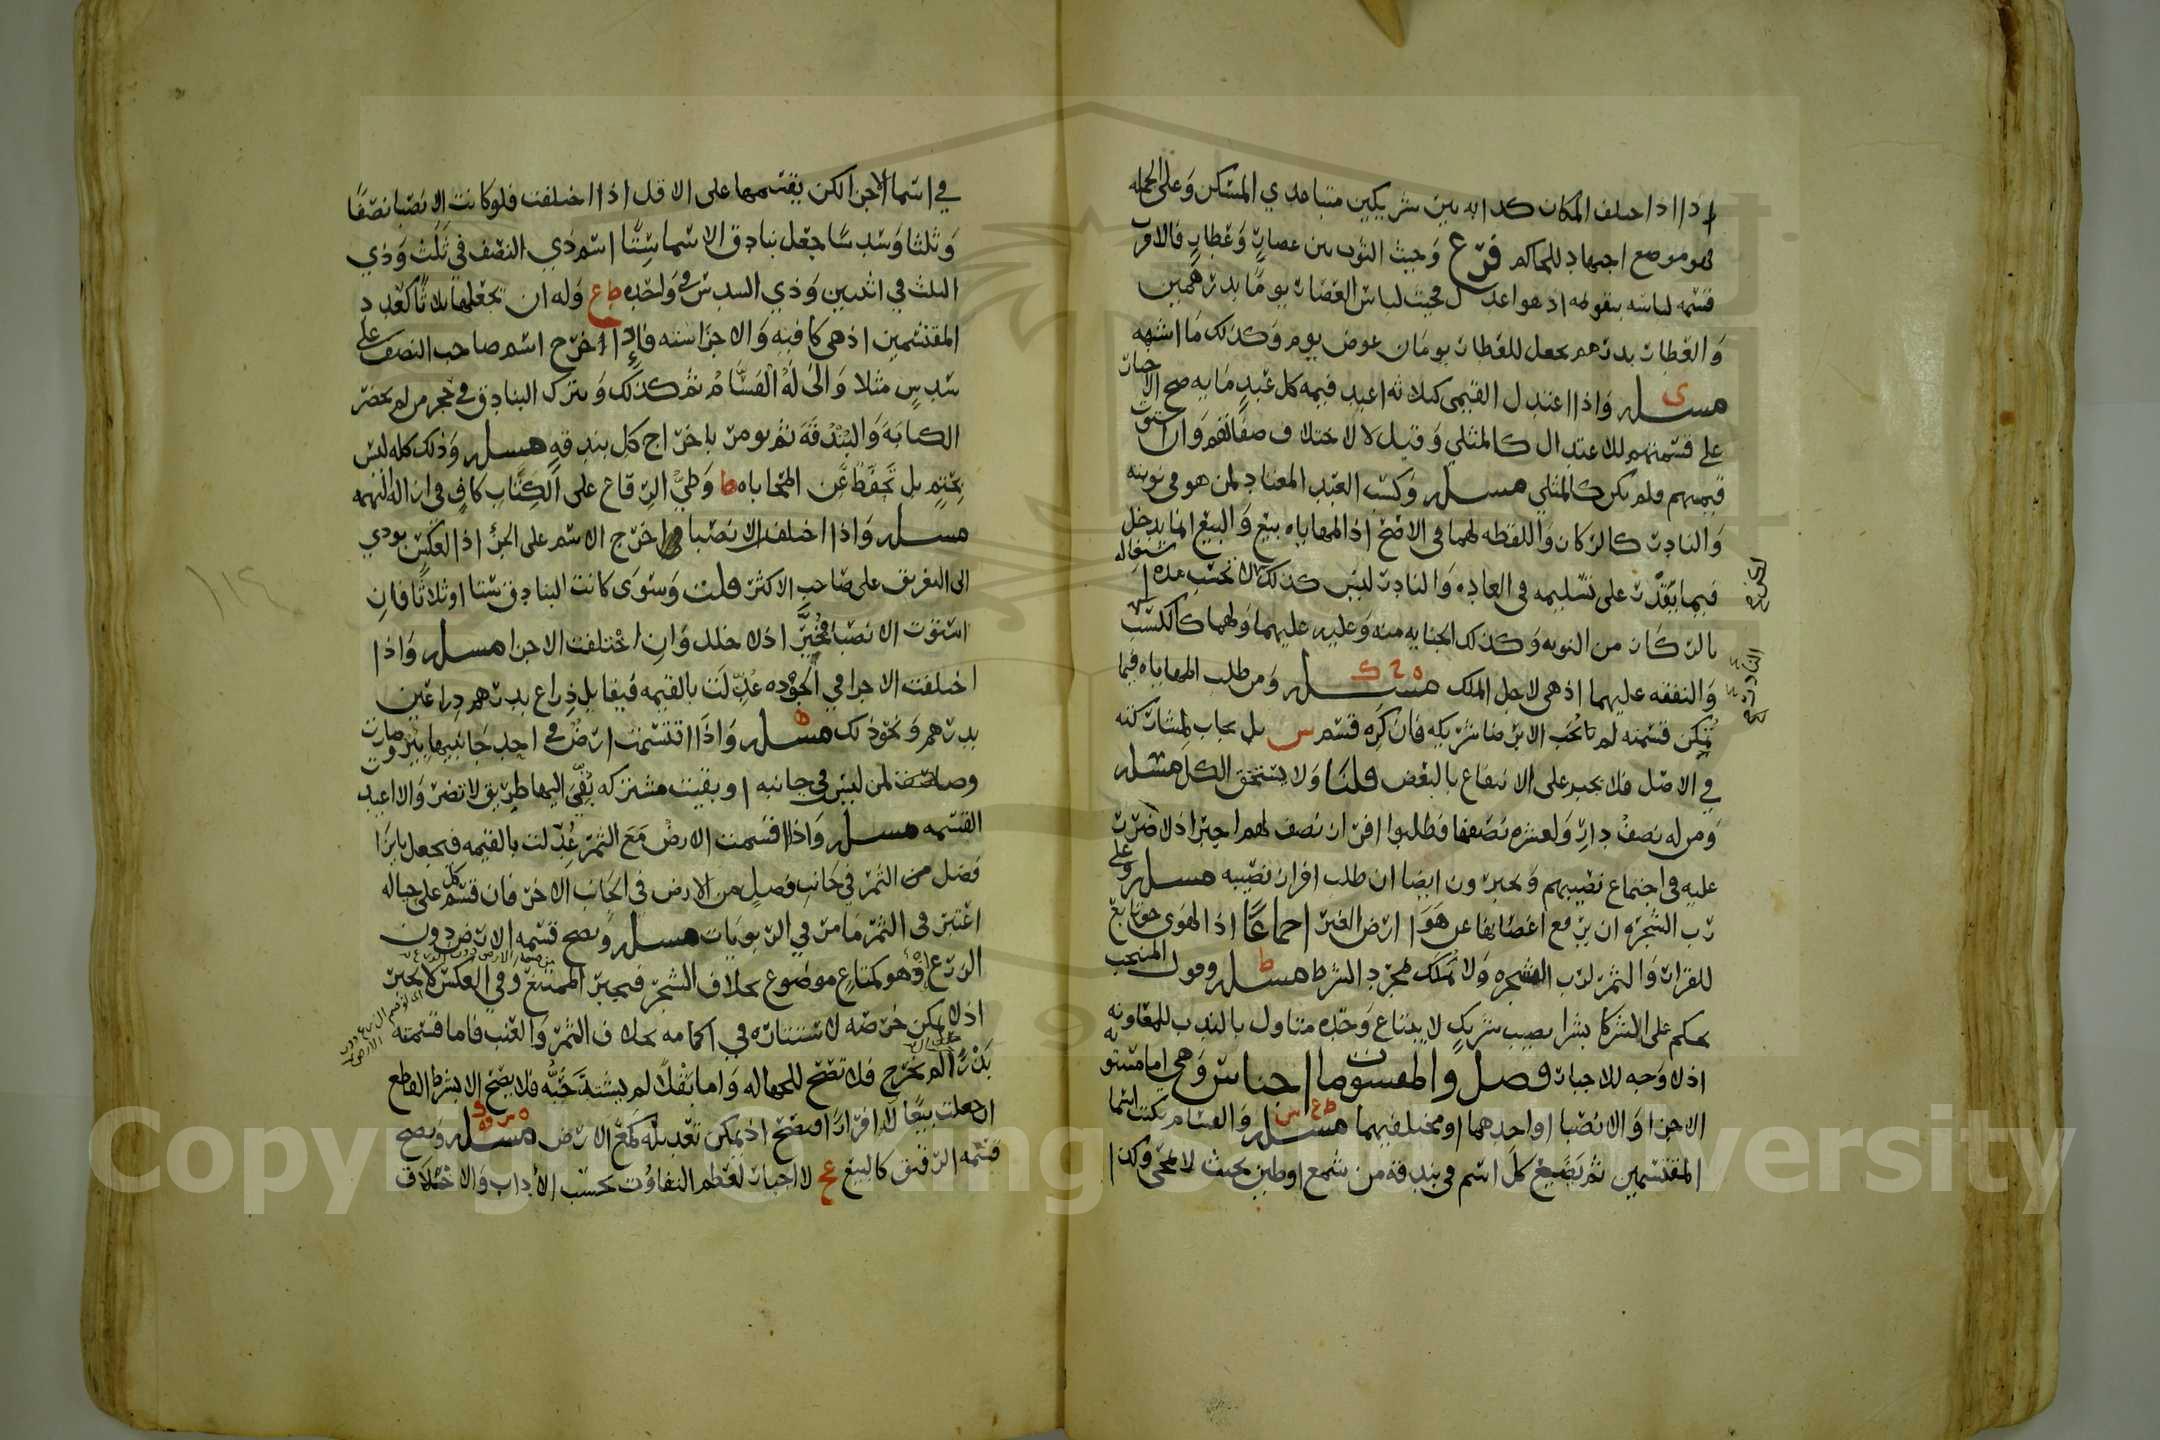 اذا اختلف المكان كدابه بين شريكين متباعدي المسكن وعلى الجمله
فهو موضع اجتهاد للحاكم فرع وحيث الثوب بين عصار وعطار فالاقرب
قسمة لباسه بتقويمه اذ هو اعدل فحيث لباس العصار يوما بدرهمين
والعطار بدرهم يجعل للعطار يومان عوض يوم وكذلك ما اشبهه
مسله واذا اعتدل القيمي كثلاثه اعبد قيمه كل عبد مايه صح الاجبار
على قسمتهم للاعتدال كالمثلي وقيل لا لاختلاف صفاتهم وان استوت
قيمهم فلم يكن كالمثلي مسله وكسب العبد المعتاد لمن هو في نوبته
والنادر كالركاز واللقطه لهما في الاصح اذ المهاياه بيع والبيع انما يدخل
فيما يقدر على تسليمه في العاده والنادر ليس كذلك
بالركاز من النوبه وكذلك الجنايه منه وعليه عليهما ولهما كالكسب
والنفقه عليهما اذ هي لاجل الملك مسله ومن طلب المهاياه فيما
يمكن قسمته لم تجب الا برضا شريكه فان كره قسم س بل يجاب لمشاركته
في الاصل فلا يجبر على الانتفاع بالبعض قلنا ولا يستحق الكل مسله
ومن له نصف دار ولعشره نصفها فطلبوا افراز نصف لهم اجيبوا اذ لا ضرر
عليه في اجتماع نصيبهم ويجبرون ايضا ان طلب افراز نصيبه مسله وعلى
رب الشجره ان يرفع اغصانها عن هوا ارض الغير اجماعا اذ الهوى حق تابع
للقرار والثمر لرب الشجره ولا تملك لمجرد الشرط مسله وقول المنتخب
يحكم على الشركا بشرا نصيب شريك لا يبتاع وحده متاول بالندب للمعاونه
اذ لا وجه للاجبار فصل والمقسومات اجناس وهي اما مستويه
الاجزا والانصبا او احدهما او مختلفيهما مسله والقسام يكتب اسما
المقتسمين ثم يضع كل اسم في بندقه من شمع او طين بحيث لا تتميز وكذا
في اسما الاجزا لكن يقسمها على الاقل اذا اختلفت فلو كانت الانصبا نصفا
وثلثا وسدسا جعل بنادق الاسما ستا اسم ذي النصف في ثلث وذي
الثلث في اثنين وذي السدس في واحده ط ع وله ان يجعلها ثلاثا كعدد
المقتسمين اذ هي كافيه والاجزا سته فاذا اخرج اسم صاحب النصف على
سدس مثلا والى له القسام ثم كذلك وتترك البنادق في حجر من لم يحضر
الكتابه والبندقه ثم يومر باخراج كل بندقه مسله وذلك كله ليس
بحتم بل تحفظ عن المحاباه ط وطي الرقاع على الكتاب كاف في ازاله التهمه
مسله واذا اختلف الانصبا اخرج الاسم على الجز اذ العكس يودي
الى التفريق على صاحب الاكثر قلت وسوى كانت البنادق ستا او ثلاثا فان
استوت الانصبا فمخير اذ لا خلل وان اختلفت الاجزا مسله واذا
اختلفت الاجزا في الجوده عدلت بالقيمه فيقابل ذراع بدرهم ذراعين
بدرهم ونحو ذلك مسله واذا اقتسمت ارض في احد جانبيها بير وصارت
لمن ليس في جانبه او بقيت مشتركه بقي اليها طريق لا تضر والا اعيد
القسمه مسله واذا اقتسمت الارض مع الثمر عدلت بالقيمه فيجعل بازا
فضل من الثمر في جانب فضل من الارض في الجانب الاخر فان قسم كل على حياله
اعتبر في الثمر ما مر في الربويات مسله ويصح قسمه الارض دون
الزرع وهو كمتاع موضوع بخلاف الشجر فيجبر الممتنع وفي العكس لا يجبر
اذ لا يمكن خرصه لاستتاره في اكمامه بخلاف الثمر والعنب فاما قسمته
بذرا لم يخرج فلا تصح للجهاله واما بقلا لم يشتد حبه فلا يصح الا بشرط القطع
ان جعلت بيعا لا افرازا فتصح اذ يمكن تعديله كمع الارض مسله ويصح
قسمه الرقيق كالبيع ع لا اجبار لعظم التفاوت بحسب الاداب والاختلاف